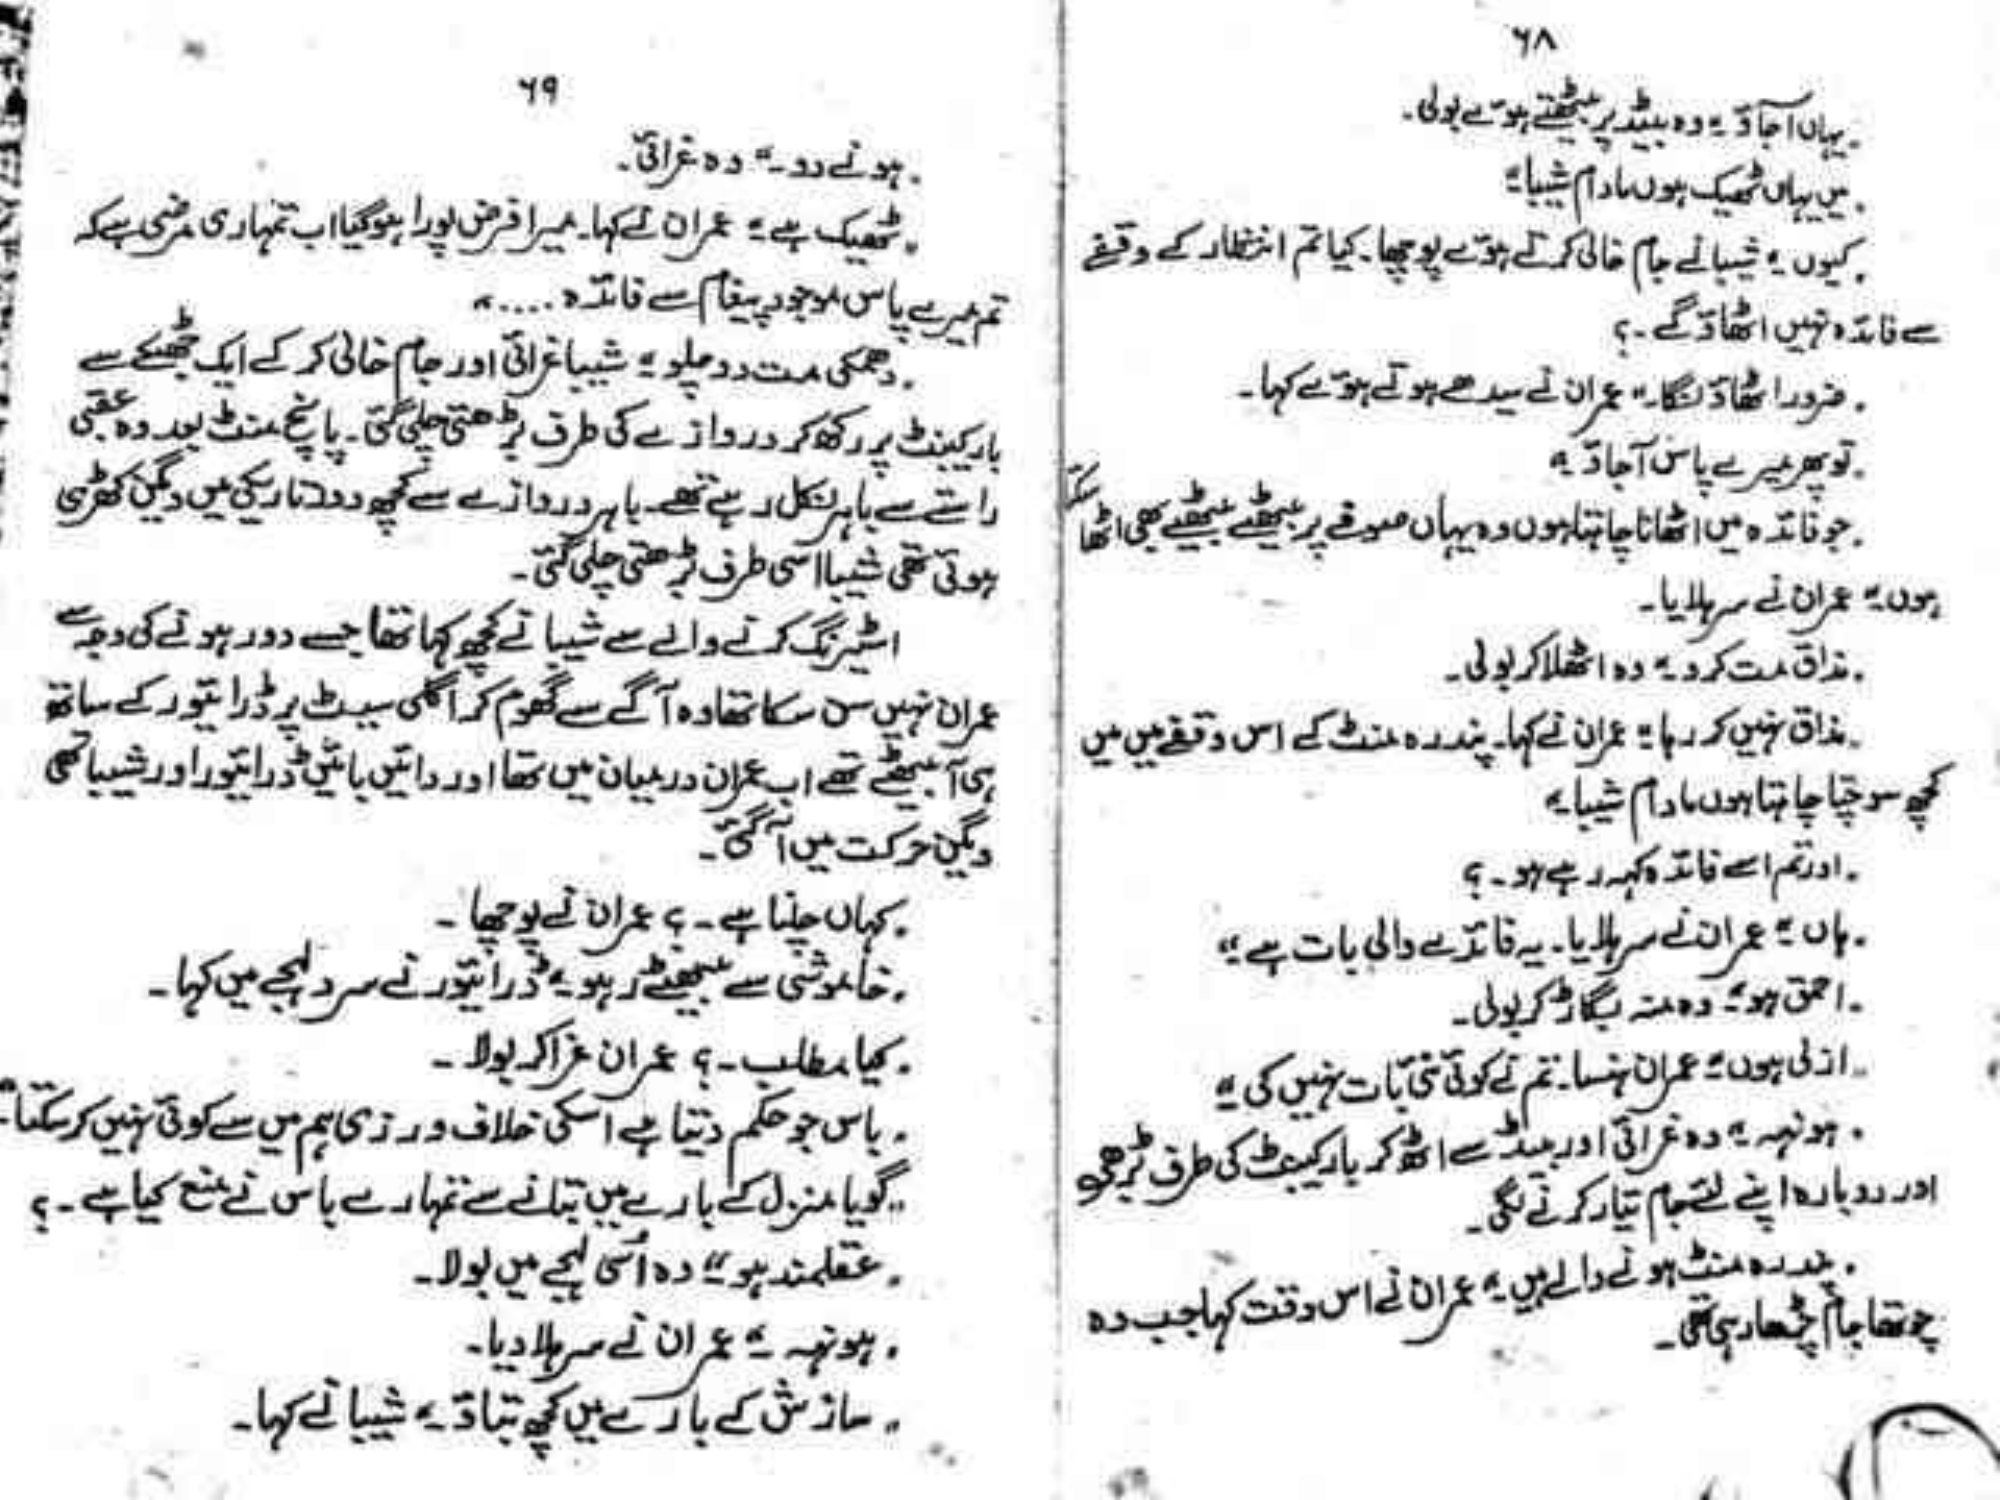 ۶۸
"یہاں آجاؤ" وہ بیڈ پر بیٹھتے ہوئے بولی۔
"میں یہاں ٹھیک ہوں مادام شیبا"
"کیوں" شیبا نے جام خالی کرتے ہوئے پوچھا۔ کیا تم انتظار کے وقفے
سے فائدہ نہیں اٹھاؤ گے۔؟
"ضرور اٹھاؤں گا۔" عمران نے سیدھے ہوتے ہوئے کہا۔
"تو پھر میرے پاس آجاؤ"
"جو فائدہ میں اٹھانا چاہتا ہوں وہ یہاں صوفے پر بیٹھے بیٹھے بھی اٹھا سکتا
ہوں" عمران نے سر ہلایا۔
"مذاق مت کرو" وہ اٹھلا کر بولی۔
"مذاق نہیں کر رہا" عمران نے کہا۔ پندرہ منٹ کے اس وقفے میں میں
کچھ سوچنا چاہتا ہوں مادام شیبا"
"اور تم اسے فائدہ کہہ رہے ہو۔؟
"ہاں" عمران نے سر ہلایا۔ یہ فائدے والی بات ہے"
"احمق ہو" وہ منہ بگاڑ کر بولی۔
"ازلی ہوں" عمران ہنسا۔ تم نے کوئی نئی بات نہیں کی"
"ہونہہ" وہ غرائی اور بیڈ سے اٹھ کر بار کیبنٹ کی طرف بڑھی
اور دوبارہ اپنے لئے جام تیار کرنے لگی۔
"پندرہ منٹ ہونے والے ہیں" عمران نے اس وقت کہا جب وہ
چوتھا جام چڑھا رہی تھی۔
۶۹
"ہونے دو۔" وہ غرائی۔
"ٹھیک ہے" عمران نے کہا۔ میرا فرض پورا ہوگیا اب تمہاری مرضی ہے کہ
تم میرے پاس موجود پیغام سے فائدہ ...."
"دھمکی مت دو چلو" شیبا غرائی اور جام خالی کر کے ایک جھٹکے سے
بار کیبنٹ پر رکھ کر دروازے کی طرف بڑھتی چلی گئی۔ پانچ منٹ بعد وہ عقبی
راستے سے باہر نکل رہے تھے۔ باہر دروازے سے کچھ دور تاریکی میں ویگن کھڑی
ہوئی تھی شیبا اسی طرف بڑھتی چلی گئی۔
اسٹیرنگ کرنے والے سے شیبا نے کچھ کہا تھا جسے دور ہونے کی وجہ سے
عمران نہیں سن سکا تھا وہ آگے سے گھوم کر اگلی سیٹ پر ڈرائیور کے ساتھ
ہی آ بیٹھے تھے اب عمران درمیان میں تھا اور دائیں بائیں ڈرائیور اور شیبا تھی
ویگن حرکت میں آگئی۔
"کہاں چلنا ہے۔؟ عمران نے پوچھا۔
"خاموشی سے بیٹھے رہو" ڈرائیور نے سرد لہجے میں کہا۔
"کیا مطلب۔؟ عمران غرا کر بولا۔
"باس جو حکم دیتا ہے اسکی خلاف ورزی ہم میں سے کوئی نہیں کر سکتا"
"گویا منزل کے بارے میں بتانے سے تمہارے باس نے منع کیا ہے۔؟
"عقلمند ہو" وہ اُسی لہجے میں بولا۔
"ہونہہ" عمران نے سر ہلا دیا۔
"سازش کے بارے میں کچھ بتاؤ" شیبا نے کہا۔